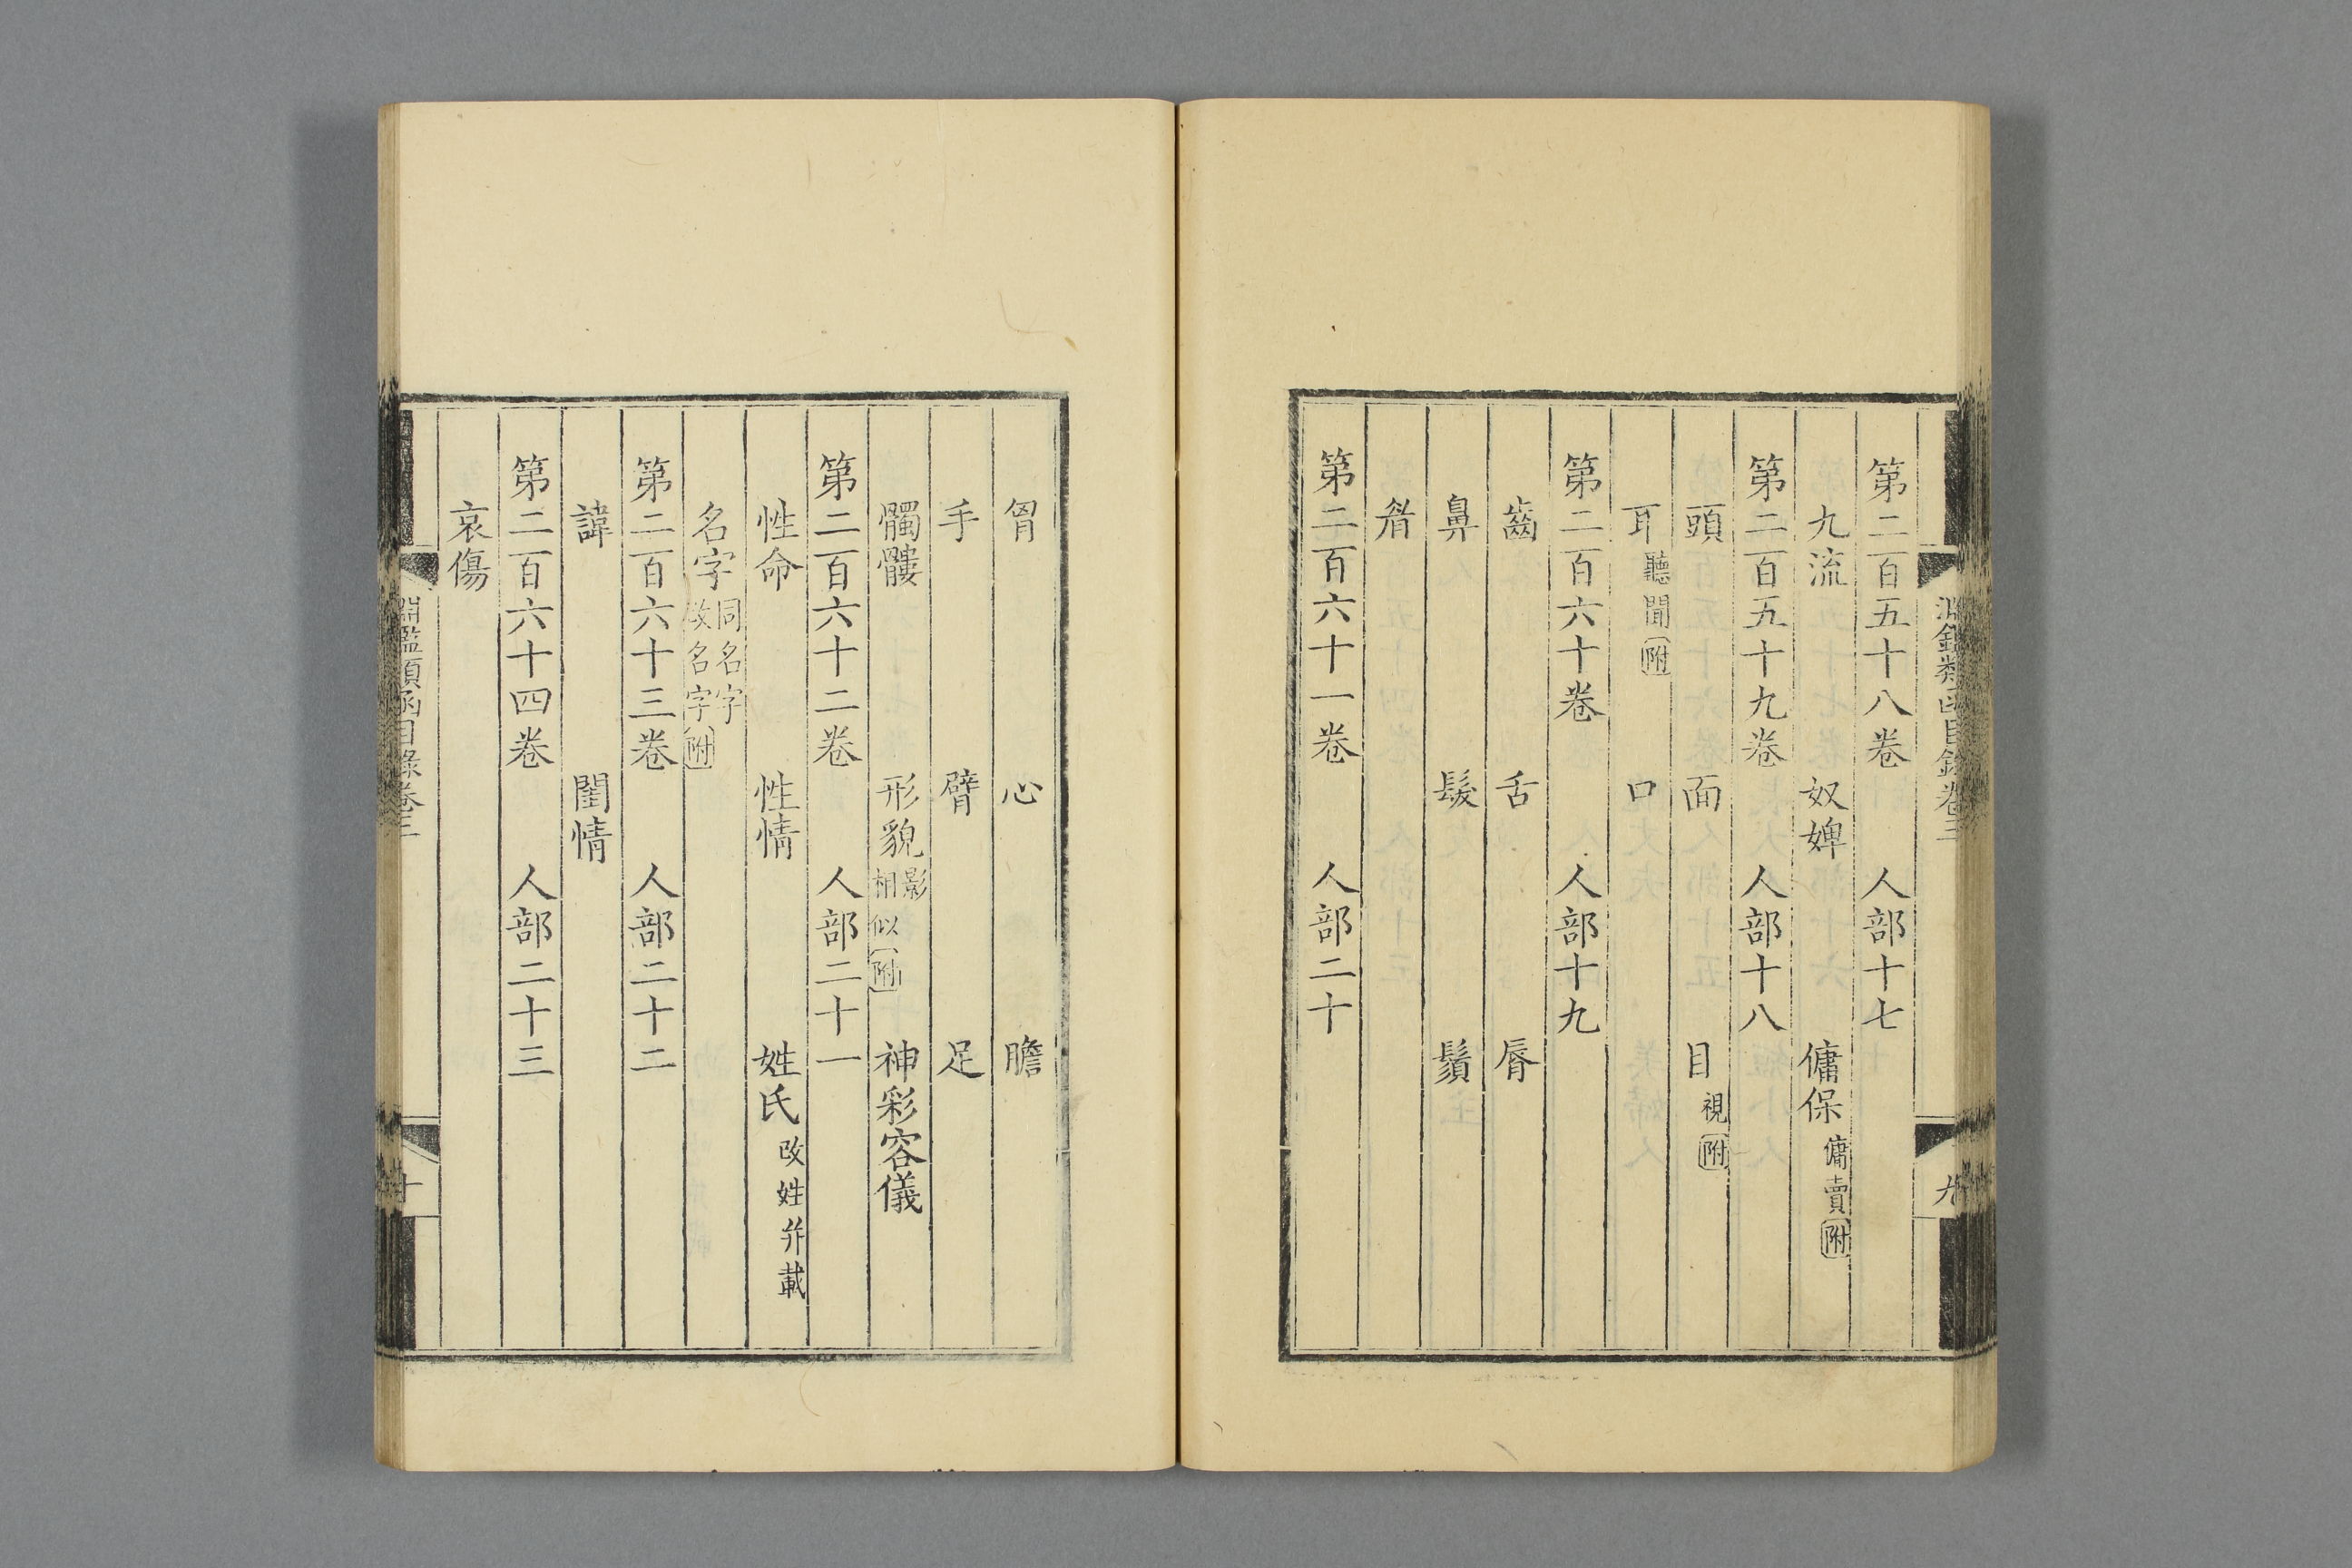 淵鑑類函目錄卷三
九
第二百五十八卷　人部十七
九流　奴婢　傭保 傭賣附
第二百五十九卷　人部十八
頭　面　目 視附
耳 聽聞附　口
第二百六十卷　人部十九
齒　舌　脣
鼻　髮　鬚
第二百六十一卷　人部二十
胷　心　膽
手　臂　足
髑髏　形貌 影相似附　神彩容儀
第二百六十二卷　人部二十一
性命　性情　姓氏 改姓并載
名字 同名字改名字附
第二百六十三卷　人部二十二
諱　閨情
第二百六十四卷　人部二十三
哀傷
淵鑑類函目錄卷三
十